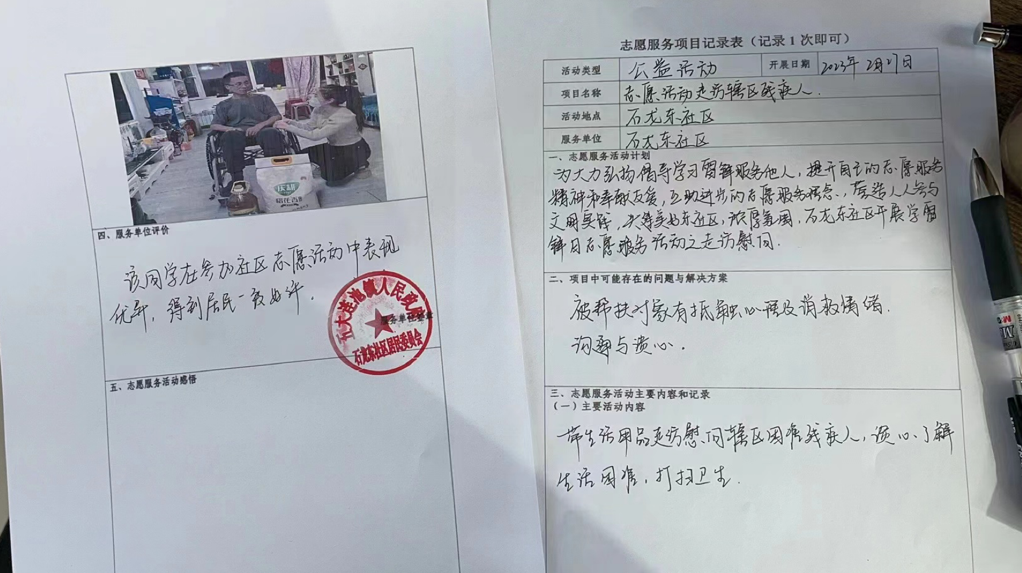 四、服务单位评价
该同学在参加社区志愿活动中表现
优异，得到居民一致好评。
五大连池镇人民政府
服务单位签章
石龙东社区居民委员会
五、志愿服务活动感悟
志愿服务项目记录表（记录1次即可）
活动类型 公益活动 开展日期 2023年2月27日
项目名称 志愿活动走访辖区残疾人.
活动地点 石龙东社区
服务单位 石龙东社区
一、志愿服务活动计划
为大力弘扬倡导学习雷锋服务他人，提升自己的志愿服务
精神和奉献友爱，互助进步的志愿服务理念. 营造人人参与
文明实践，社区，浓厚氛围，石龙东社区开展学雷
锋日志愿服务活动之走访慰问.
二、项目中可能存在的问题与解决方案
被帮扶对象有抵触心理及消极情绪.
沟通与谈心.
三、志愿服务活动主要内容和记录
（一）主要活动内容
带生活用品走访慰问辖区困难残疾人，谈心、了解
生活困难，打扫卫生.